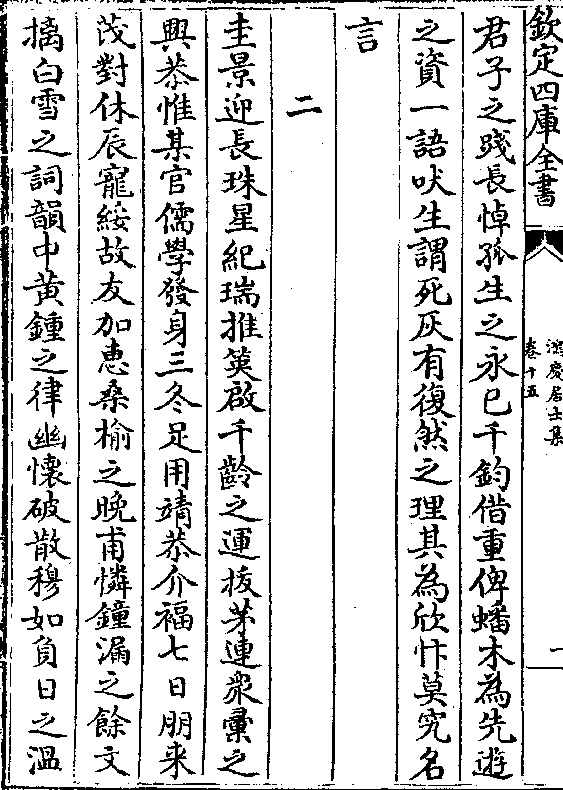 欽定四庫全書
鴻慶居士集
卷十五
一
君子之踐長悼孤生之永已千鈞借重俾蟠木為先逰
之資一語吠生謂死灰有復然之理其為欣忭莫究名
言
二
圭景迎長珠星紀瑞推筴啟千齡之運拔茅連衆彚之
興恭惟某官儒學發身三冬足用靖恭介福七日朋来
茂對休辰寵綏故友加惠桑榆之晚甫憐鐘漏之餘文
摛白雪之詞韻中黄鍾之律幽懐破散穆如負日之溫